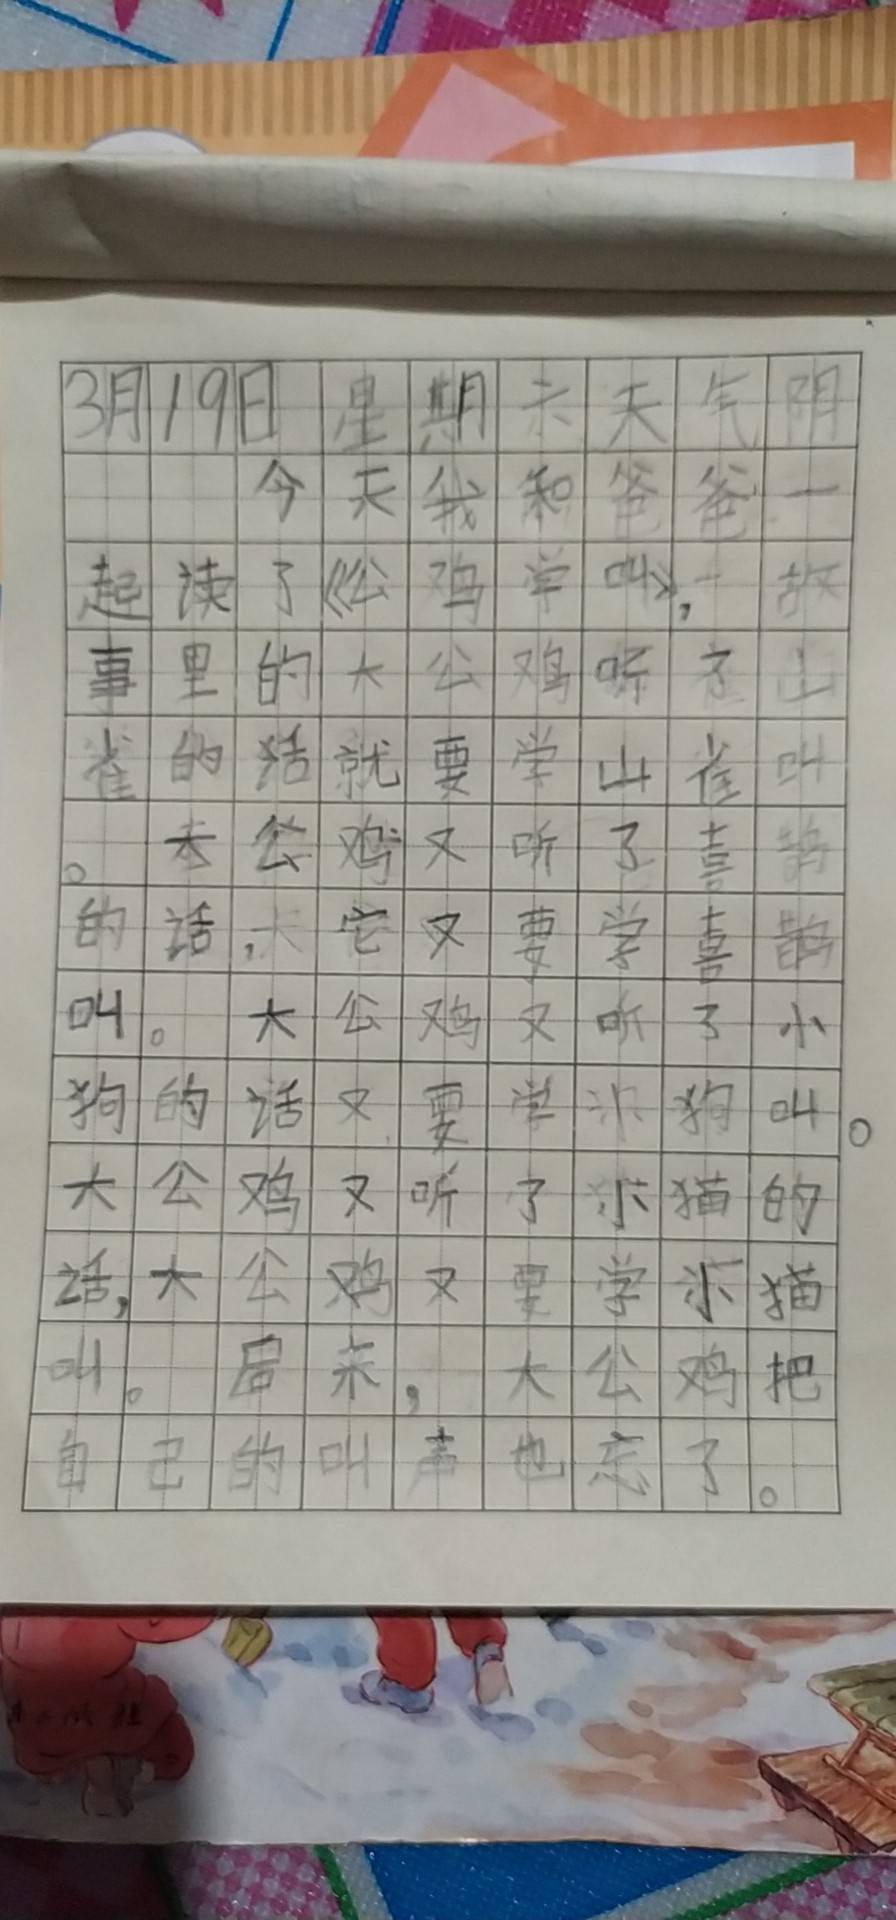 3月19日 星期六 天气阴
今天我和爸爸一
起读了《公鸡学叫》,故
事里的大公鸡听了山
雀的话就要学山雀叫
。大公鸡又听了喜鹊
的话,它又要学喜鹊
叫。大公鸡又听了小
狗的话又要学小狗叫。
大公鸡又听了小猫的
话,大公鸡又要学小猫
叫。后来,大公鸡把
自己的叫声也忘了。